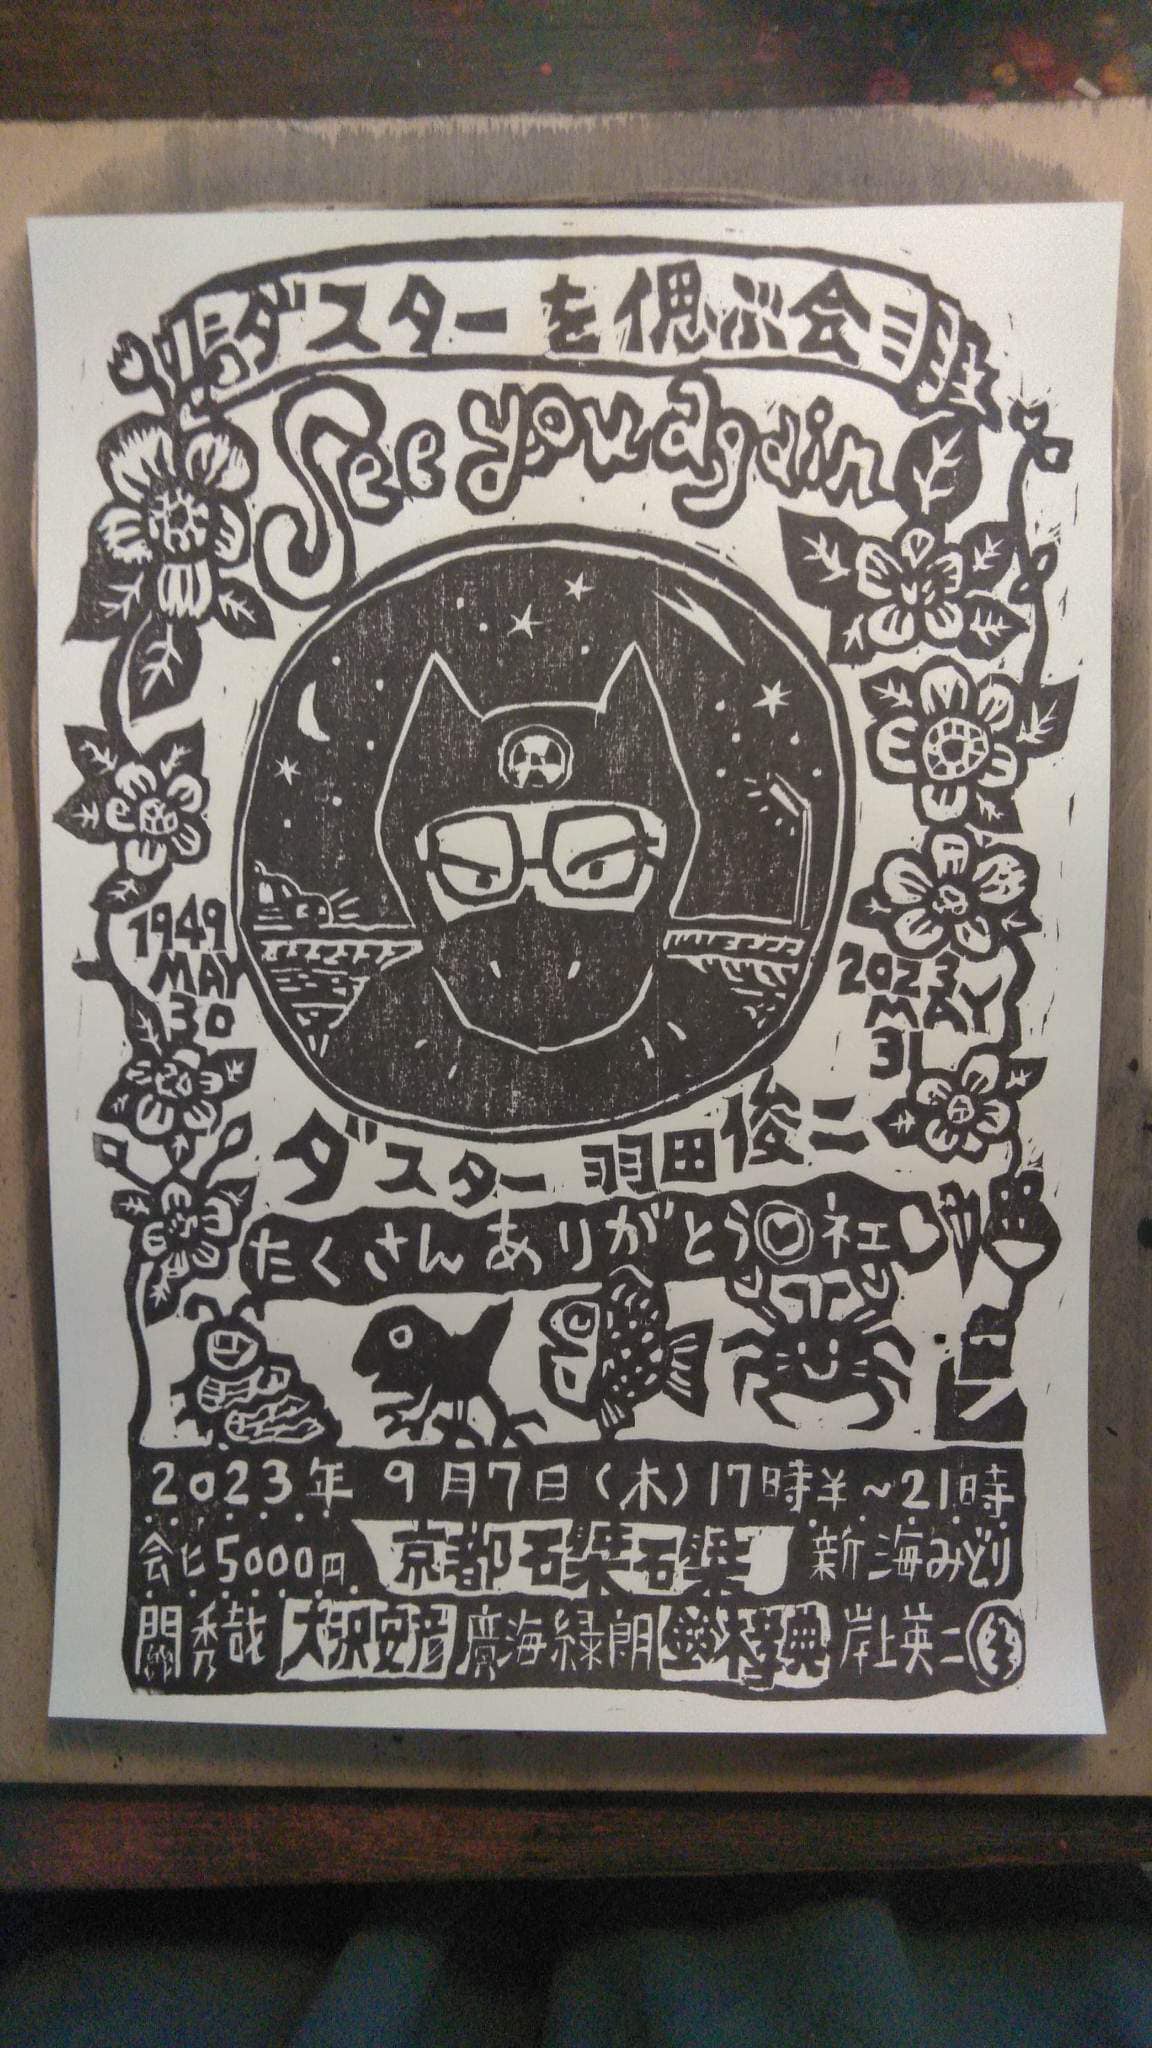 ダスターを偲ぶ会
See you again
1949
MAY
30
2023
MAY
31
ダスター 羽田俊二
たくさんありがとう 社
2023年 9月7日(木)17時半~21時
会ヒ5000円 京都 新海みどり
関秀哉 大沢安彦 廣海緑朗 鈴木孝典 岸上英二